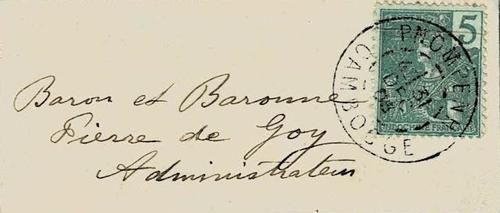 5
PNOMPENH
CAMBODGE
Baron et Baronne
Pierre de Goy
Administrateur